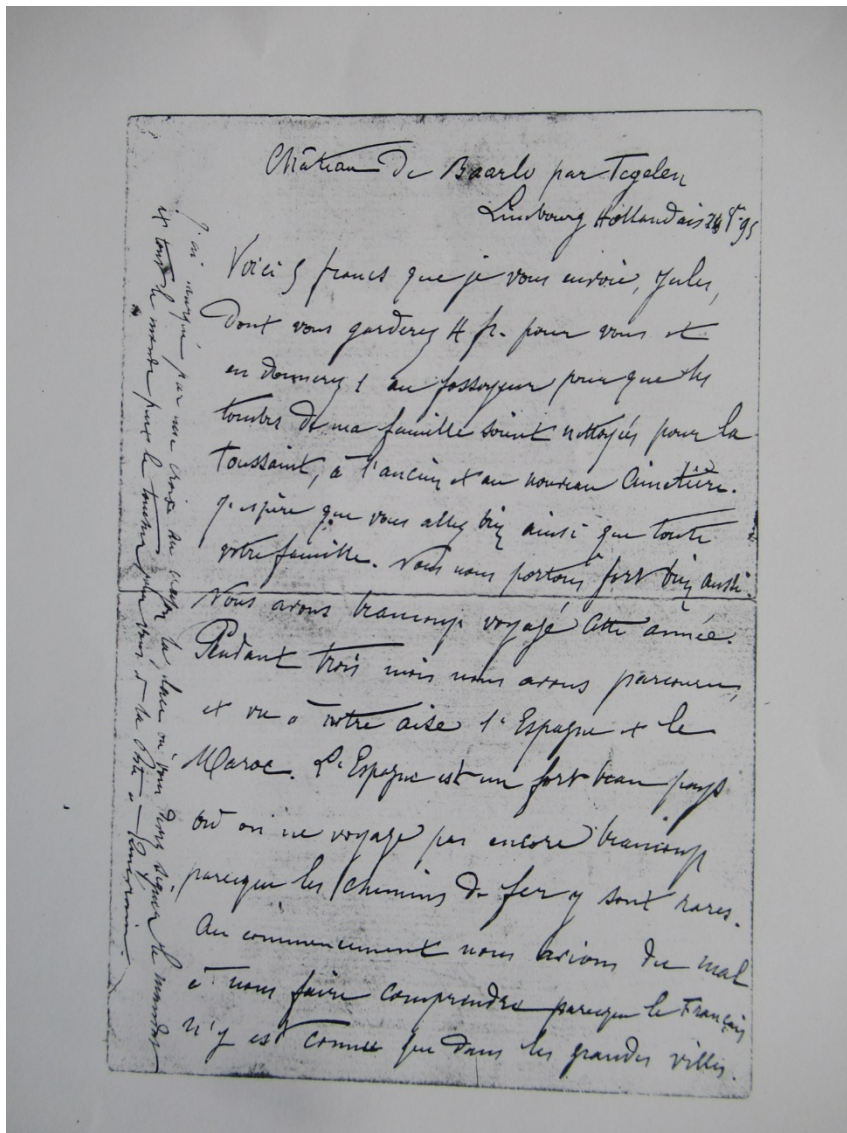 Château de Baarlo par Tegelen
Limbourg Hollandais 95
Voici 5 francs que je vous envoie, Jules,
Dont vous garderez 4 fr. pour vous et
en Donnerez 1 au fossoyeur pour que les
tombes de ma famille soient nettoyés pour la
Toussaint, à l'ancien et au nouveau Cimetière.
J'espère que vous allez bien ainsi que toute
votre famille. Nous nous portons fort bien aussi.
Nous avons beaucoup voyagé cette année.
Pendant trois mois nous avons parcouru,
et vu à notre aise l'Espagne et le
Maroc. L'Espagne est un fort beau pays
où on ne voyage pas encore beaucoup
parceque les chemins de fer y sont rares.
Au commencement nous avions du mal
à nous faire comprendre parceque le Français
n'y est connu que dans les grandes villes.
J'ai marqué par une croix au crayon la place où vous devez signer le mandat
et tout le monde peut le toucher pour vous à la Poste à